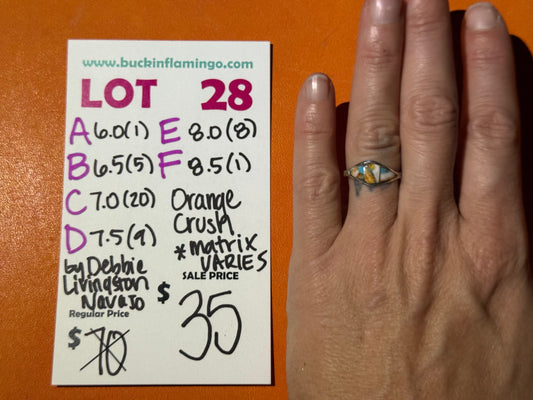 www.buckinflamingo.com
LOT 28
A 6.0(1) E 8.0(8)
B 6.5(5) F 8.5(1)
C 7.0(20) Orange
Crush
D 7.5(9) *matrix
VARIES
by Debbie
Livingston
Navajo
SALE PRICE
$35
Regular Price
$70